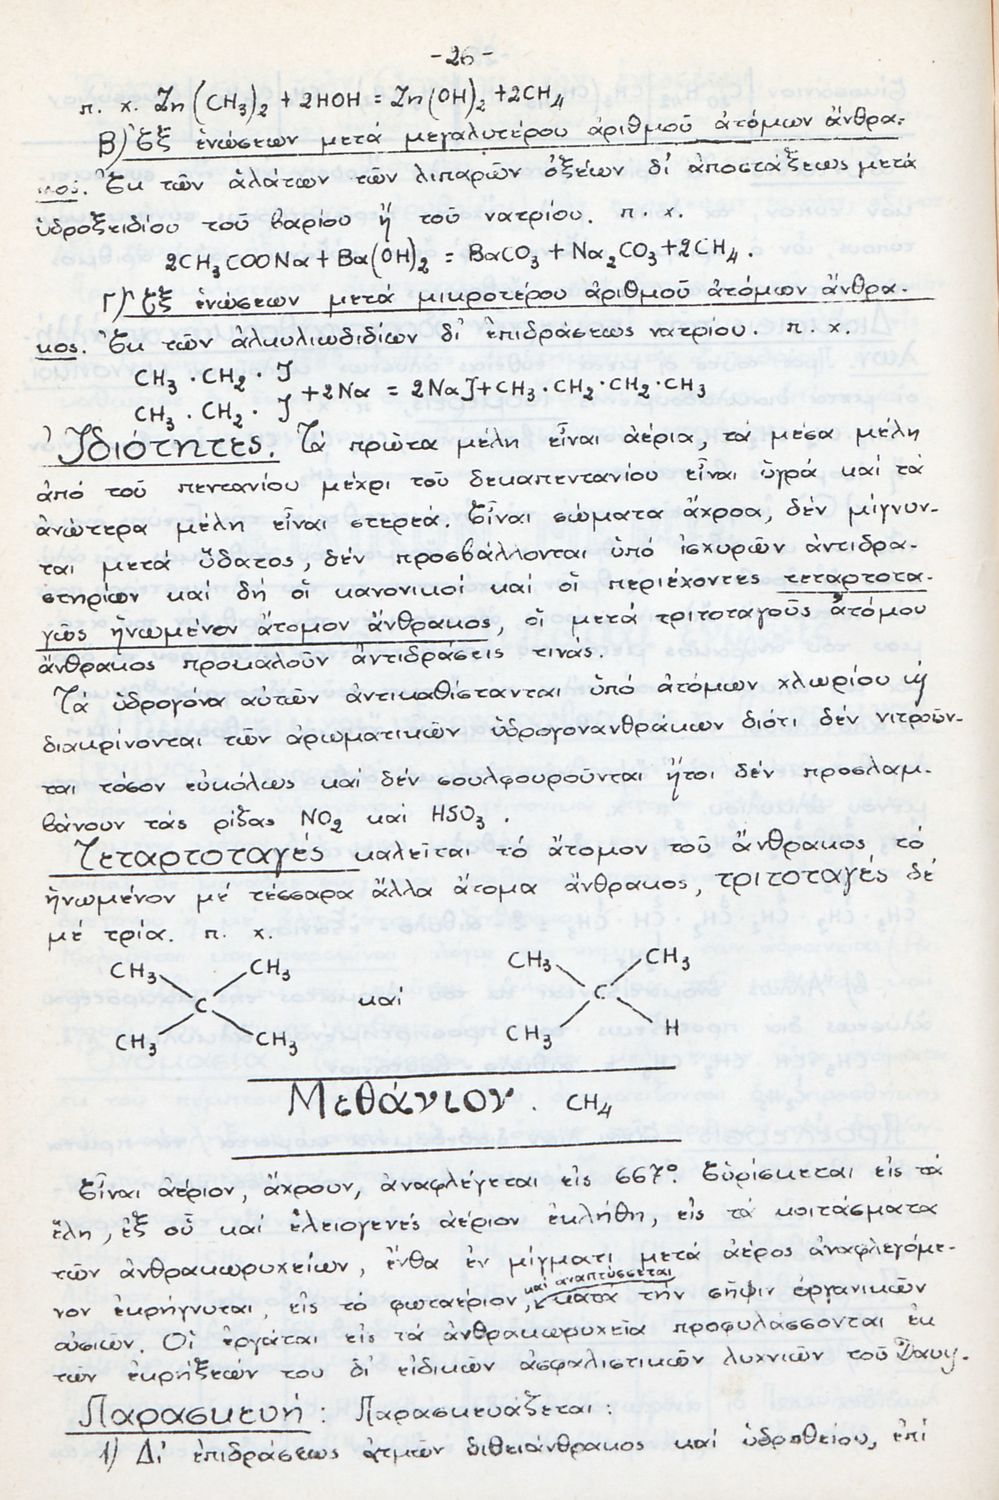 -26-
π. χ. Zn(CH₃)₂ + 2HOH = Zn(OH)₂ + 2CH₄
Β) Ἐξ ἑνώσεων μετά μεγαλυτέρου ἀριθμοῦ ἀτόμων ἄνθρα-
κος. Ἐκ τῶν ἁλάτων τῶν λιπαρῶν ὀξέων δι' ἀποστάξεως μετά
ὑδροξειδίου τοῦ βαρίου ἤ τοῦ νατρίου. π. χ.
2CH₃COONα + Βα(OH)₂ = ΒαCO₃ + Nα₂CO₃ + 2CH₄.
Γ) Ἐξ ἑνώσεων μετά μικροτέρου ἀριθμοῦ ἀτόμων ἄνθρα-
κος. Ἐκ τῶν ἀλκυλιωδιδίων δι' ἐπιδράσεως νατρίου. π. χ.
CH₃ · CH₂ · J
+ 2Nα = 2NαJ + CH₃ · CH₂ · CH₂ · CH₃
CH₃ · CH₂ · J
Ἰδιότητες. Τά πρῶτα μέλη εἶναι ἀέρια, τά μέσα μέλη
ἀπό τοῦ πεντανίου μέχρι τοῦ δεκαπεντανίου εἶναι ὑγρά καί τά
ἀνώτερα μέλη εἶναι στερεά. Εἶναι σώματα ἄχροα, δέν μίγνυν-
ται μετά ὕδατος, δέν προσβάλλονται ὑπό ἰσχυρῶν ἀντιδρα-
στηρίων καί δή οἱ κανονικοί καί οἱ περιέχοντες τεταρτοτα-
γῶς ἡνωμένον ἄτομον ἄνθρακος, οἱ μετά τριτοταγοῦς ἀτόμου
ἄνθρακος προκαλοῦν ἀντιδράσεις τινάς.
Τά ὑδρογόνα αὐτῶν ἀντικαθίστανται ὑπό ἀτόμων χλωρίου ϗ
διακρίνονται τῶν ἀρωματικῶν ὑδρογονανθράκων διότι δέν νιτροῦν-
ται τόσον εὐκόλως καί δέν σουλφουροῦνται ἤτοι δέν προσλαμ-
βάνουν τάς ρίζας NO₂ καί HSO₃.
Τεταρτοταγές καλεῖται τό ἄτομον τοῦ ἄνθρακος τό
ἡνωμένον μέ τέσσαρα ἄλλα ἄτομα ἄνθρακος, τριτοταγές δέ
μέ τρία. π. χ.
CH₃ CH₃ CH₃ CH₃
C καί C
CH₃ CH₃ CH₃ H
Μεθάνιον. CH₄
Εἶναι ἀέριον, ἄχρουν, ἀναφλέγεται εἰς 667°. Εὑρίσκεται εἰς τά
ἕλη, ἐξ οὗ καί ἑλειογενές ἀέριον ἐκλήθη, εἰς τά κοιτάσματα
τῶν ἀνθρακωρυχείων, ἔνθα ἐν μίγματι μετά ἀέρος ἀναφλεγόμε-
νον ἐκρήγνυται εἰς τό φωταέριον, καί ἀναπτύσσεται κατά τήν σῆψιν ὀργανικῶν
οὐσιῶν. Οἱ ἐργάται εἰς τά ἀνθρακωρυχεῖα προφυλάσσονται ἐκ
τῶν ἐκρήξεών του δι' εἰδικῶν ἀσφαλιστικῶν λυχνιῶν τοῦ Davy.
Παρασκευή: Παρασκευάζεται:
1) Δι' ἐπιδράσεως ἀτμῶν διθειάνθρακος καί ὑδροθείου, ἐπί